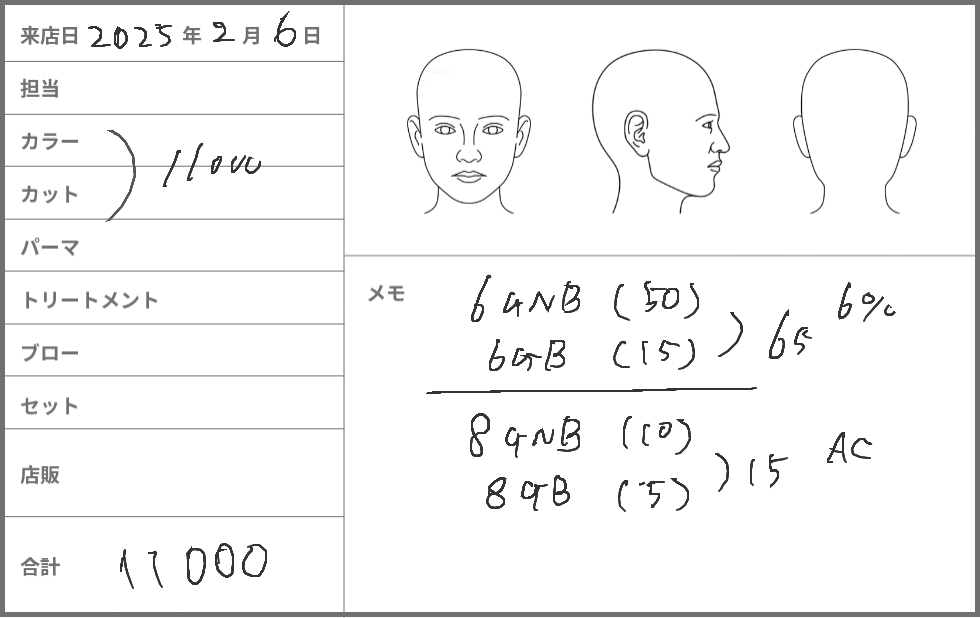 来店日 2025 年 2 月 6 日
担当
カラー
カット
) 11000
パーマ
トリートメント
ブロー
セット
店販
合計 11000
メモ
6GNB (50)
6GB (15)
) 65 6%
8GNB (10)
8GB (5)
) 15 AC